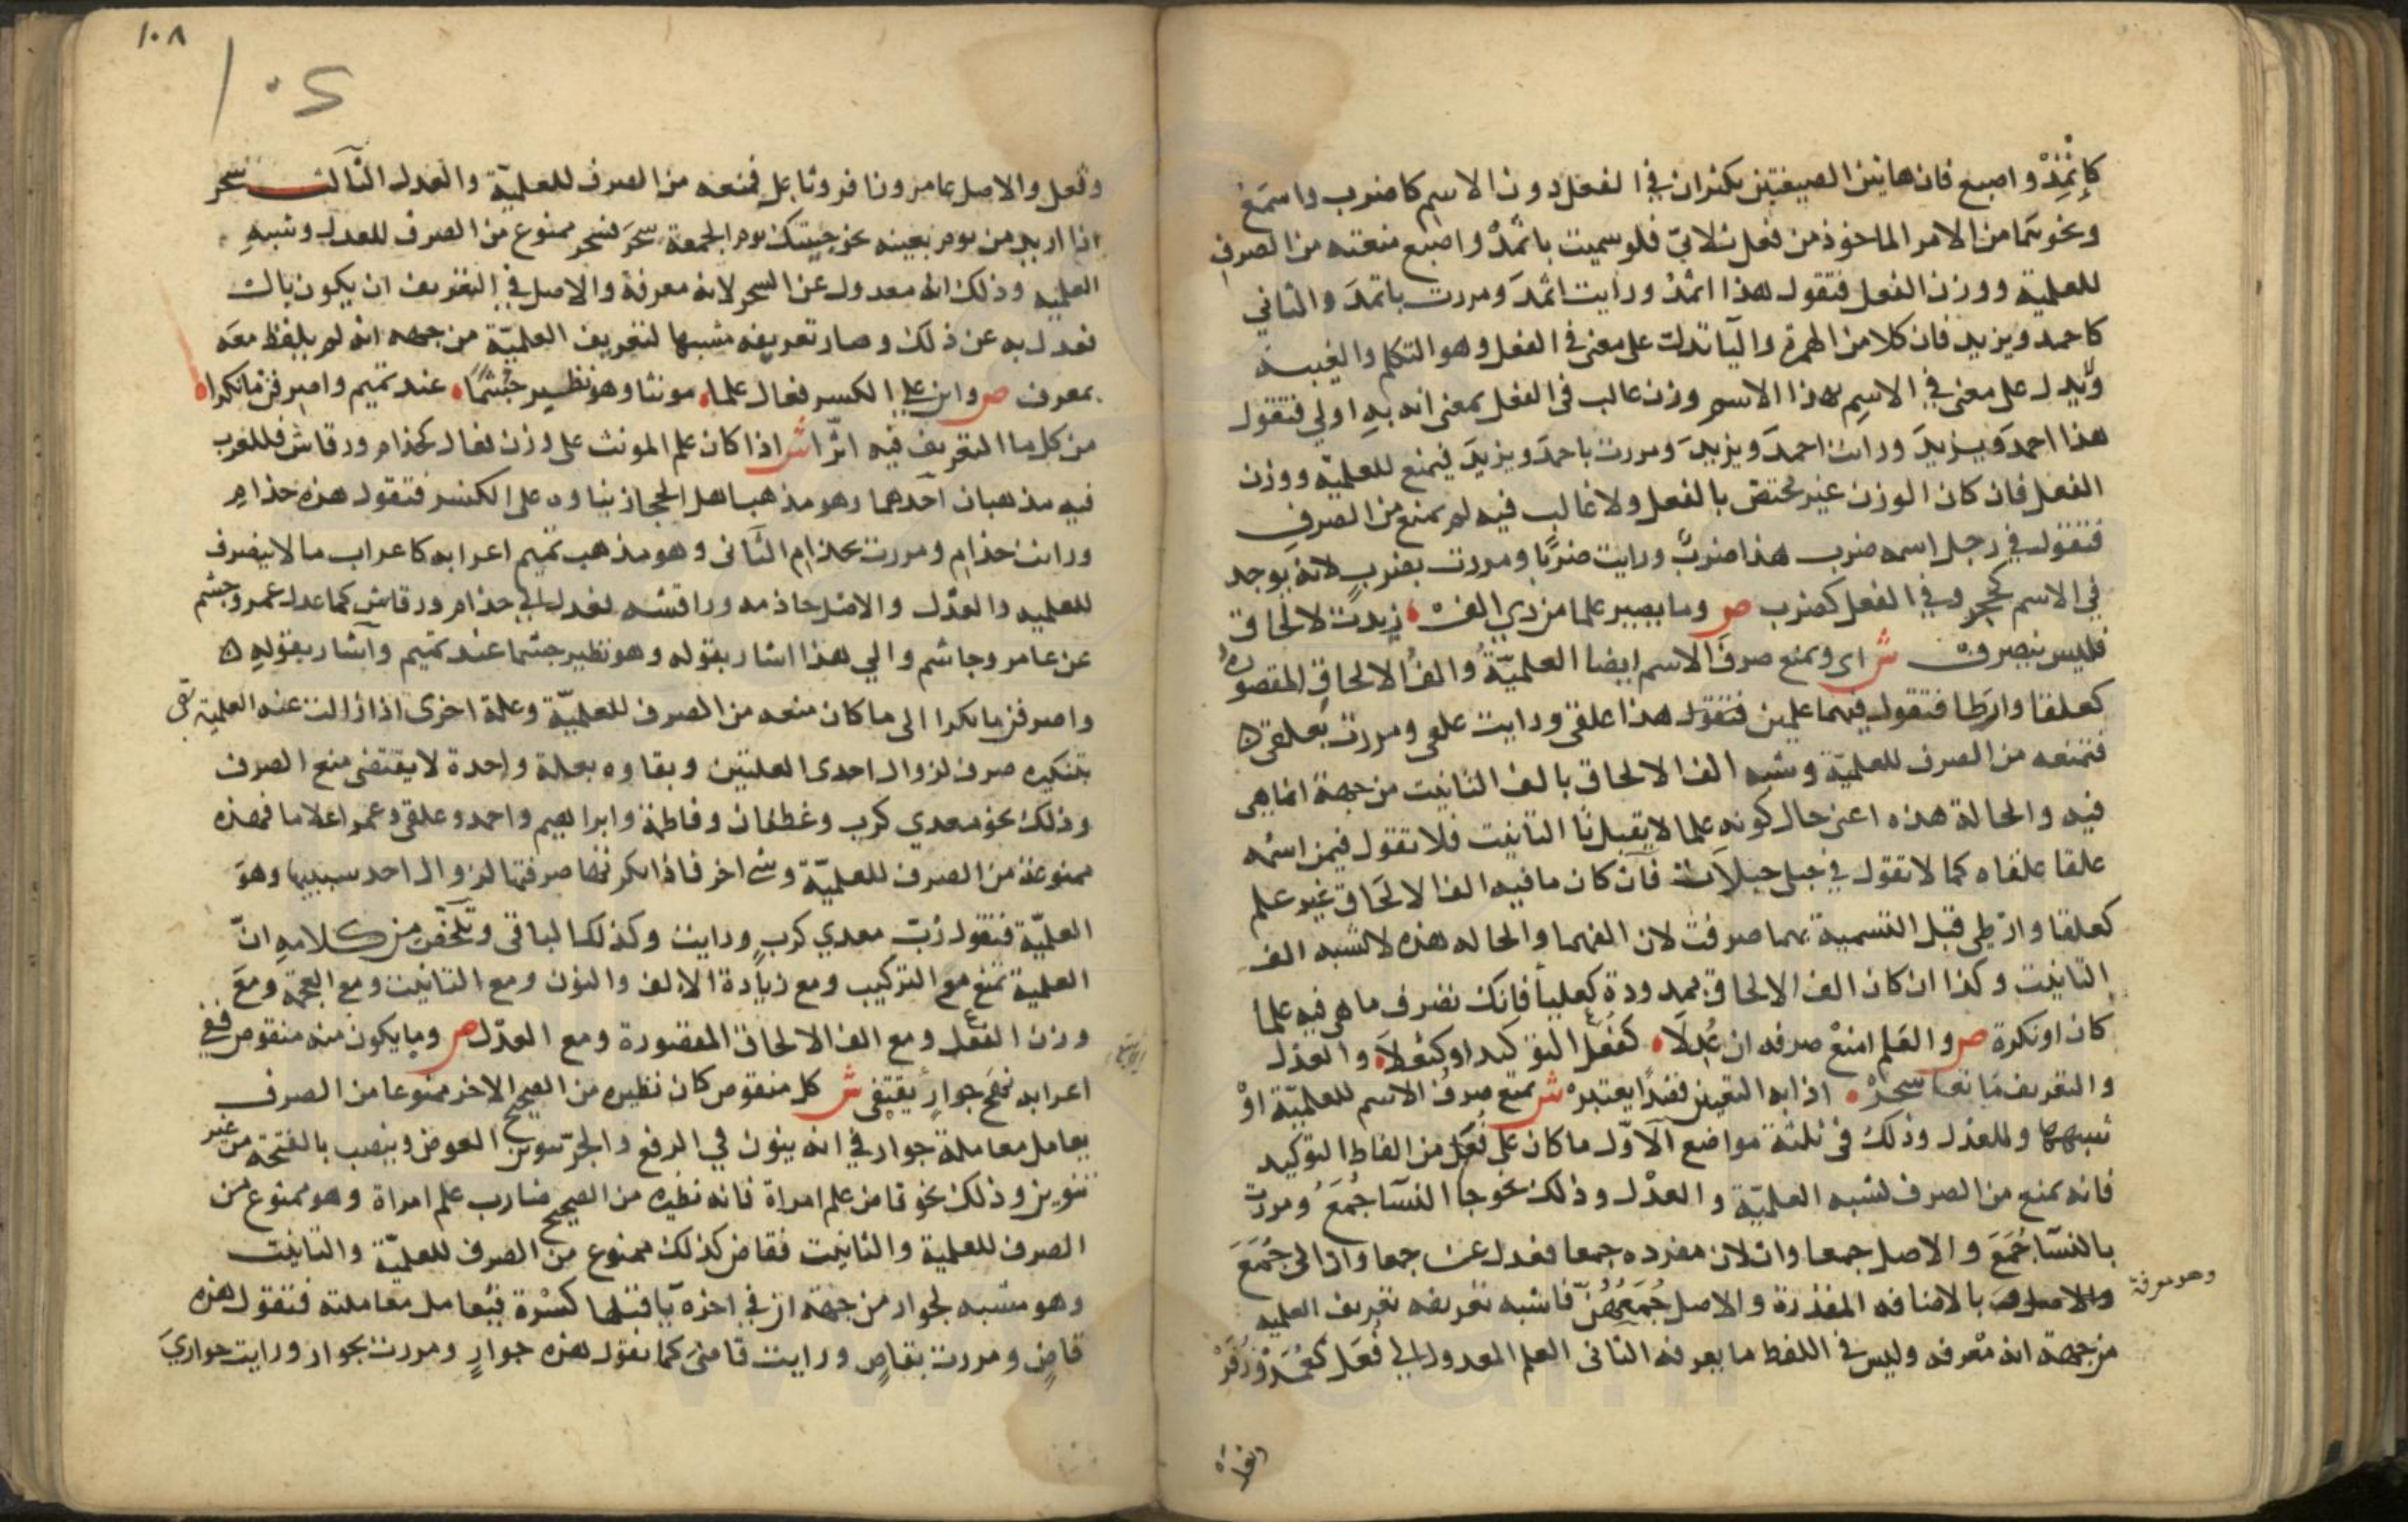 كإثمد واصبع فان هاتين الصيغتين يكثران في الفعل دون الاسم كاضرب واسمع
ونحوهما من الامر الماخوذ من فعل ثلاثي فلو سميت باثمد واصبع منعته من الصرف
للعلمية ووزن الفعل فتقول هذا اثمد ورايت اثمد ومررت باثمد والثاني
كاحمد ويزيد فان كلا من الهمزة واليا تدل على معنى في الفعل وهو التكلم والغيبة
ولا يدل على معنى في الاسم فهذا الاسم وزن غالب في الفعل بمعنى انه به اولي فتقول
هذا احمد ويزيد ورايت احمد ويزيد ومررت باحمد ويزيد فيمنع للعلمية ووزن
الفعل فان كان الوزن غير مختص بالفعل ولا غالب فيه لم يمنع من الصرف
فتقول في رجل اسمه ضرب هذا ضرب ورايت ضربا ومررت بضرب لانه يوجد
في الاسم كحجر وفي الفعل كضرب ص وما يصير علما من ذي الف زيدت لالحاق
فليس ينصرف ش اى ويمنع صرف الاسم ايضا العلمية والف الالحاق المقصوره
كعلقا وارطا فتقول فيهما علمين فتقول هذا علقى ورايت علقى ومررت بعلقى
فتمنعه من الصرف للعلمية وشبه الف الالحاق بالف التانيث من جهة انما هى
فيه والحالة هذه اعنى حال كونه علما لا يقبل تا التانيث فلا تقول فيمن اسمه
علقا علقاه كما لا تقول في حبلى حبلاة فان كان ما فيه الف الالحاق غير علم
كعلقا وارطى قبل التسمية بهما صرفت لان الفهما والحاله هذه لا تشبه الف
التانيث وكذا ان كان الف الالحاق ممدودة كعلبا فانك تصرف ما هي فيه علما
كان او نكرة ص والعلم امنع صرفه ان عدلا كفعل التوكيد او كثعلا والعدل
والتعريف مانعا سحر اذا به التعيين قصدا يعتبر ش يمنع صرف الاسم للعلمية او
شبهها وللعدل وذلك في ثلثة مواضع الاول ما كان على فعل من الفاظ التوكيد
فانه يمنع من الصرف لشبه العلمية والعدل وذلك نحو جا النسا جمع ومررت
بالنسا جمع والاصل جمعاوات لان مفرده جمعا فعدل عن جمعاوات الى جمع
وهو معرفة بالاضافه المقدرة والاصل جمعهن فاشبه تعريفه تعريف العلميه
من جهة انه معرفه وليس في اللفظ ما يعرفه الثانى العلم المعدول الى فعل كعمر وزفر
وثعل
١٠٨
١٠٢
وثعل والاصل عامر وزافر وثاعل فمنعه من الصرف للعلمية والعدل الثالث سحر
اذا اريد من يوم بعينه نحو جيتك يوم الجمعة سحر فسحر ممنوع من الصرف للعدل وشبه
العلميه وذلك انه معدول عن السحر لانه معرفة والاصل في التعريف ان يكون بال
فعدل به عن ذلك وصار تعريفه مشبها لتعريف العلمية من جهه انه لم يلفظ معه
بمعرف ص وابن على الكسر فعال علما مونثا وهو نظير جشما عند تميم واصرفن ما نكرا
من كل ما التعريف فيه اثرا ش اذا كان علم المونث على وزن فعال كحذام ورقاش فللعرب
فيه مذهبان احدهما وهو مذهب اهل الحجاز بناوه على الكسر فتقول هذه حذام
ورايت حذام ومررت بحذام الثانى وهو مذهب تميم اعرابه كاعراب ما لا ينصرف
للعلميه والعدل والاصل حاذمه وراقشه فعدل الي حذام ورقاش كما عدل عمر وجشم
عن عامر وجاشم والي هذا اشار بقوله وهو نظير جشما عند تميم واشار بقوله
واصرفن ما نكرا الى ما كان منعه من الصرف للعلمية وعلة اخرى اذا زالت عنه العلمية
بتنكيره صرف لزوال احدى العلتين وبقاوه بعلة واحدة لا يقتضى منع الصرف
وذلك نحو معدي كرب وغطفان وفاطمة وابراهيم واحمد وعلقى وعمر اعلاما فهذه
ممنوعة من الصرف للعلمية وشى اخر فاذا نكرتها صرفتها لزوال احد سببيها وهو
العلمية فتقول رب معدي كرب ورايت وكذلك الباقى وتلخص من كلامه ان
العلمية تمنع مع التركيب ومع زيادة الالف والنون ومع التانيث ومع العجمة ومع
وزن الفعل ومع الف الالحاق المقصورة ومع العدل ص وما يكون منه منقوص ففي
اعرابه نهج جوار يقتفى ش كل منقوص كان نظيره من الصحيح الاخر ممنوعا من الصرف
يعامل معاملة جوار في انه ينون في الرفع والجر تنوين العوض وينصب بالفتحة من غير
تنوين وذلك نحو قاض علم امراة فانه نظيره من الصحيح ضارب علم امراة وهو ممنوع من
الصرف للعلمية والتانيث فقاض كذلك ممنوع من الصرف للعلمية والتانيث
وهو مشبه لجوار من جهة ان في اخره يا قبلها كسرة فيعامل معاملته فتقول هذه
قاض ومررت بقاض ورايت قاضى كما تقول هذه جوار ومررت بجوار ورايت جواري